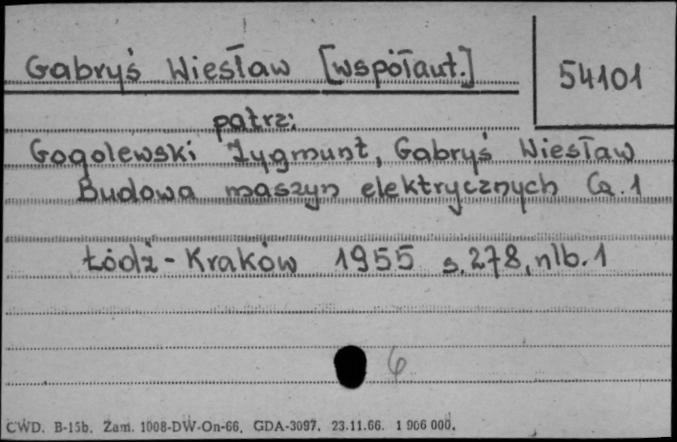 Gabryś Wiesław [współaut.]
54101
patrz:
Gogolewski Zygmunt, Gabryś Wiesław
Budowa maszyn elektrycznych Cz. 1
Łódź - Kraków 1955 s. 278, nlb. 1
6
CWD. B-15b. Zam. 1008-DW-On-66. GDA-3097. 23.11.66. 1 906 000.